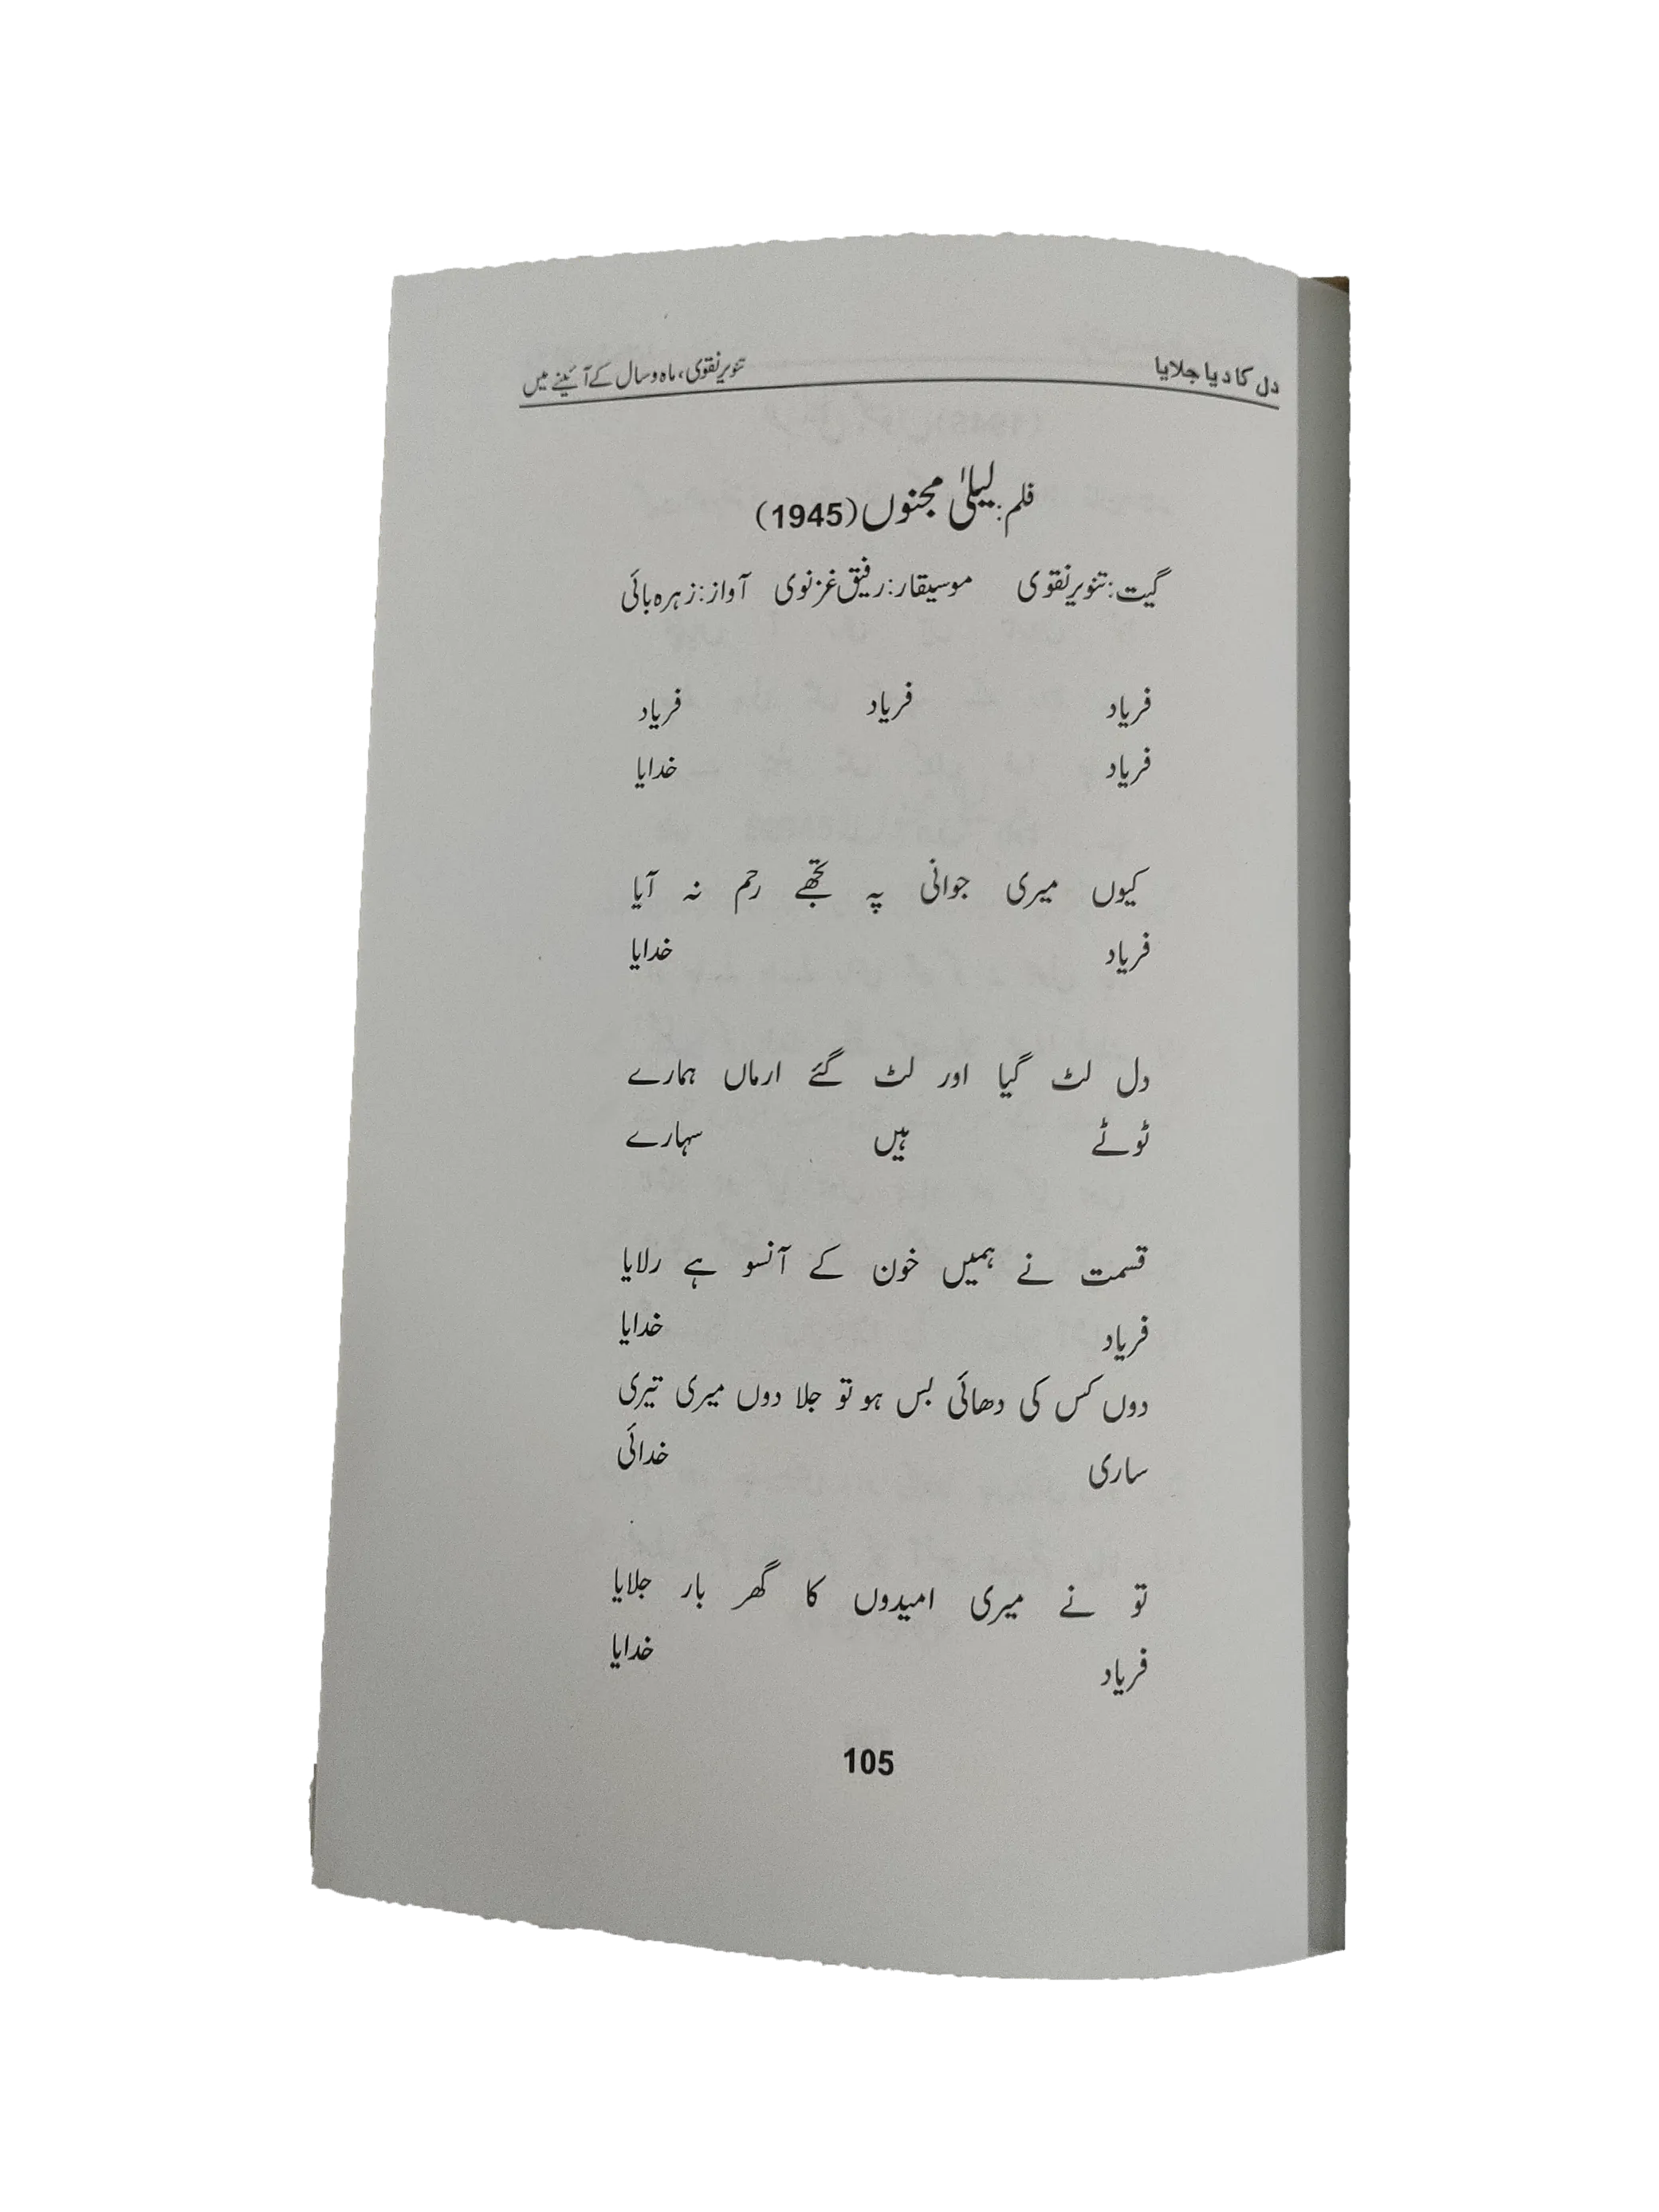 دل کا دیا جلایا تنویر نقوی، ماہ و سال کے آئینے میں
فلم: لیلیٰ مجنوں (1945)
گیت: تنویر نقوی موسیقار: رفیق غزنوی آواز: زہرہ بائی
فریاد فریاد فریاد
فریاد خدایا
کیوں میری جوانی پہ تجھے رحم نہ آیا
فریاد خدایا
دل لٹ گیا اور لٹ گئے ارماں ہمارے
ٹوٹے ہیں سہارے
قسمت نے ہمیں خون کے آنسو ہے رلایا
فریاد خدایا
دوں کس کی دھائی بس ہو تو جلا دوں میری تیری
ساری خدائی
تو نے میری امیدوں کا گھر بار جلایا
فریاد خدایا
105